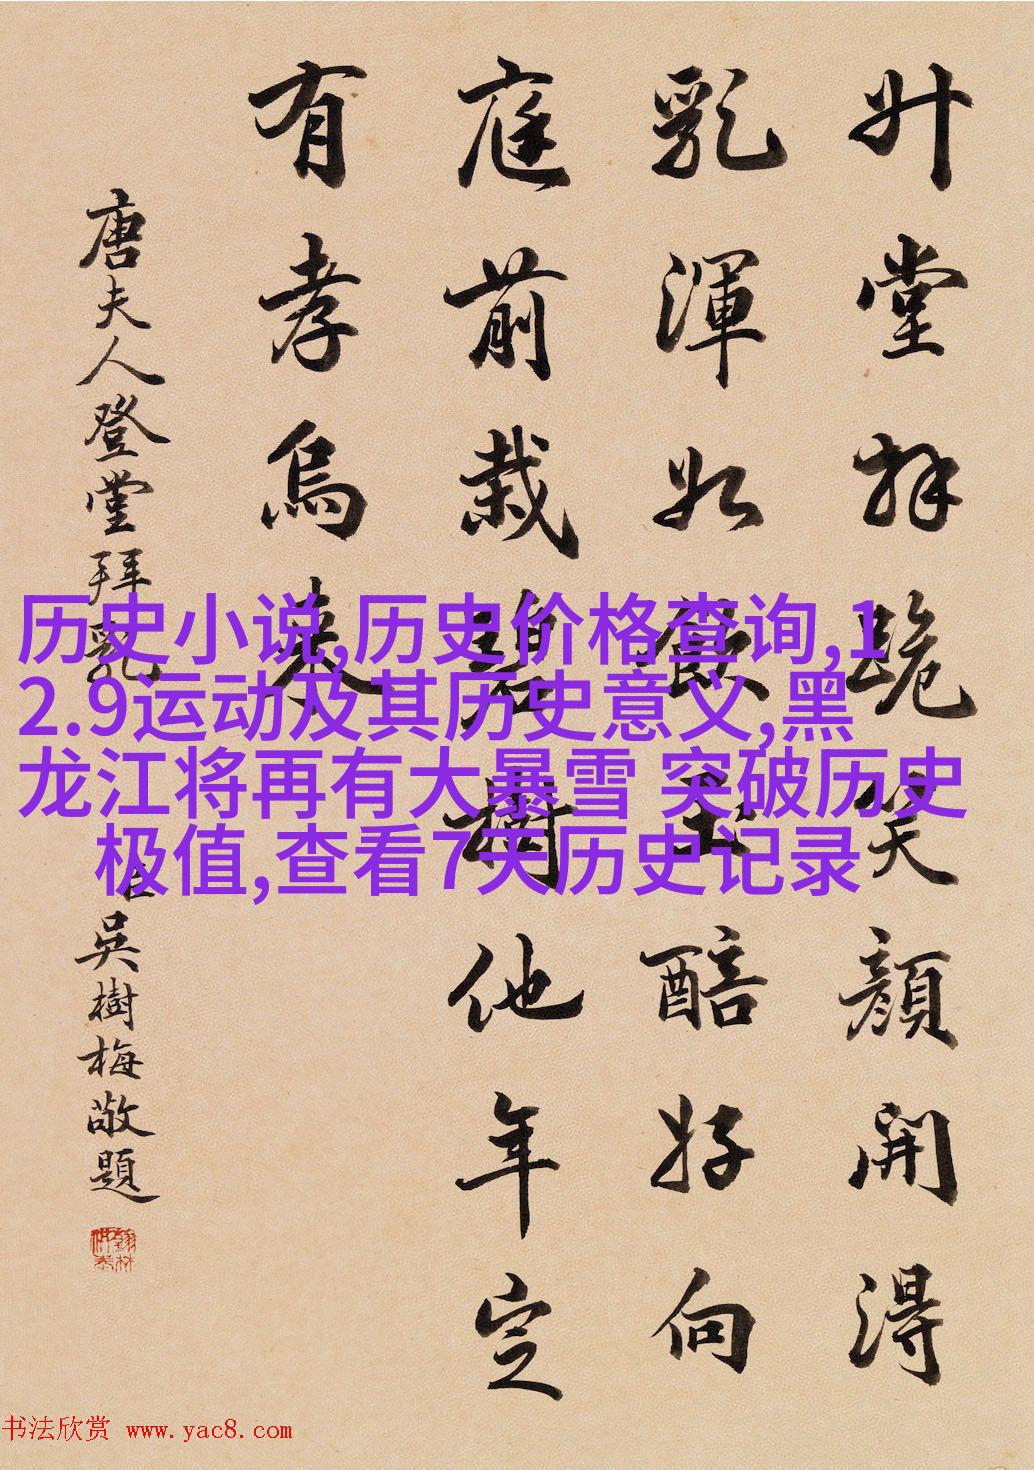 升堂拜跪笑顏開得
乳渾如飲玉醅好向
庭前栽碧樹他年定
有孝烏來
唐夫人登堂拜乳
臣吳樹梅敬題
历史小说,历史价格查询,1
2.9运动及其历史意义,黑
龙江将再有大暴雪 突破历史
极值,查看7天历史记录
书法欣赏 www.yac8.com